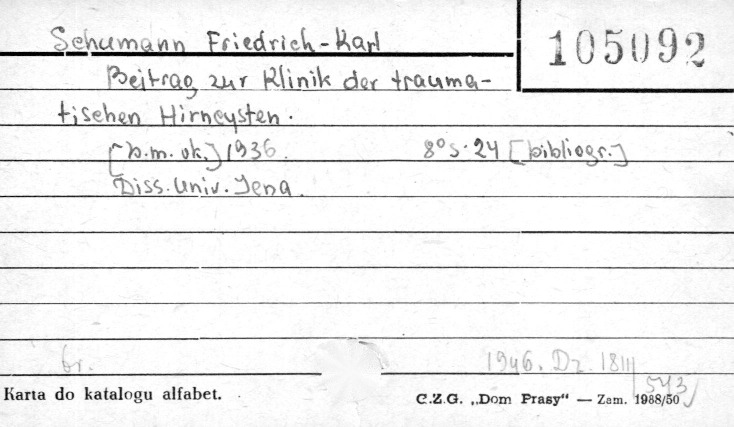 Schumann Friedrich-Karl
105092
Beitrag zur Klinik der trauma-
tischen Hirncysten.
[b.m. ok.] 1936. 8° s. 24 [bibliogr.]
Diss. Univ. Jena.
br.
1946. Dz. 1811
543
Karta do katalogu alfabet.
C.Z.G. „Dom Prasy" — Zam. 1988/50